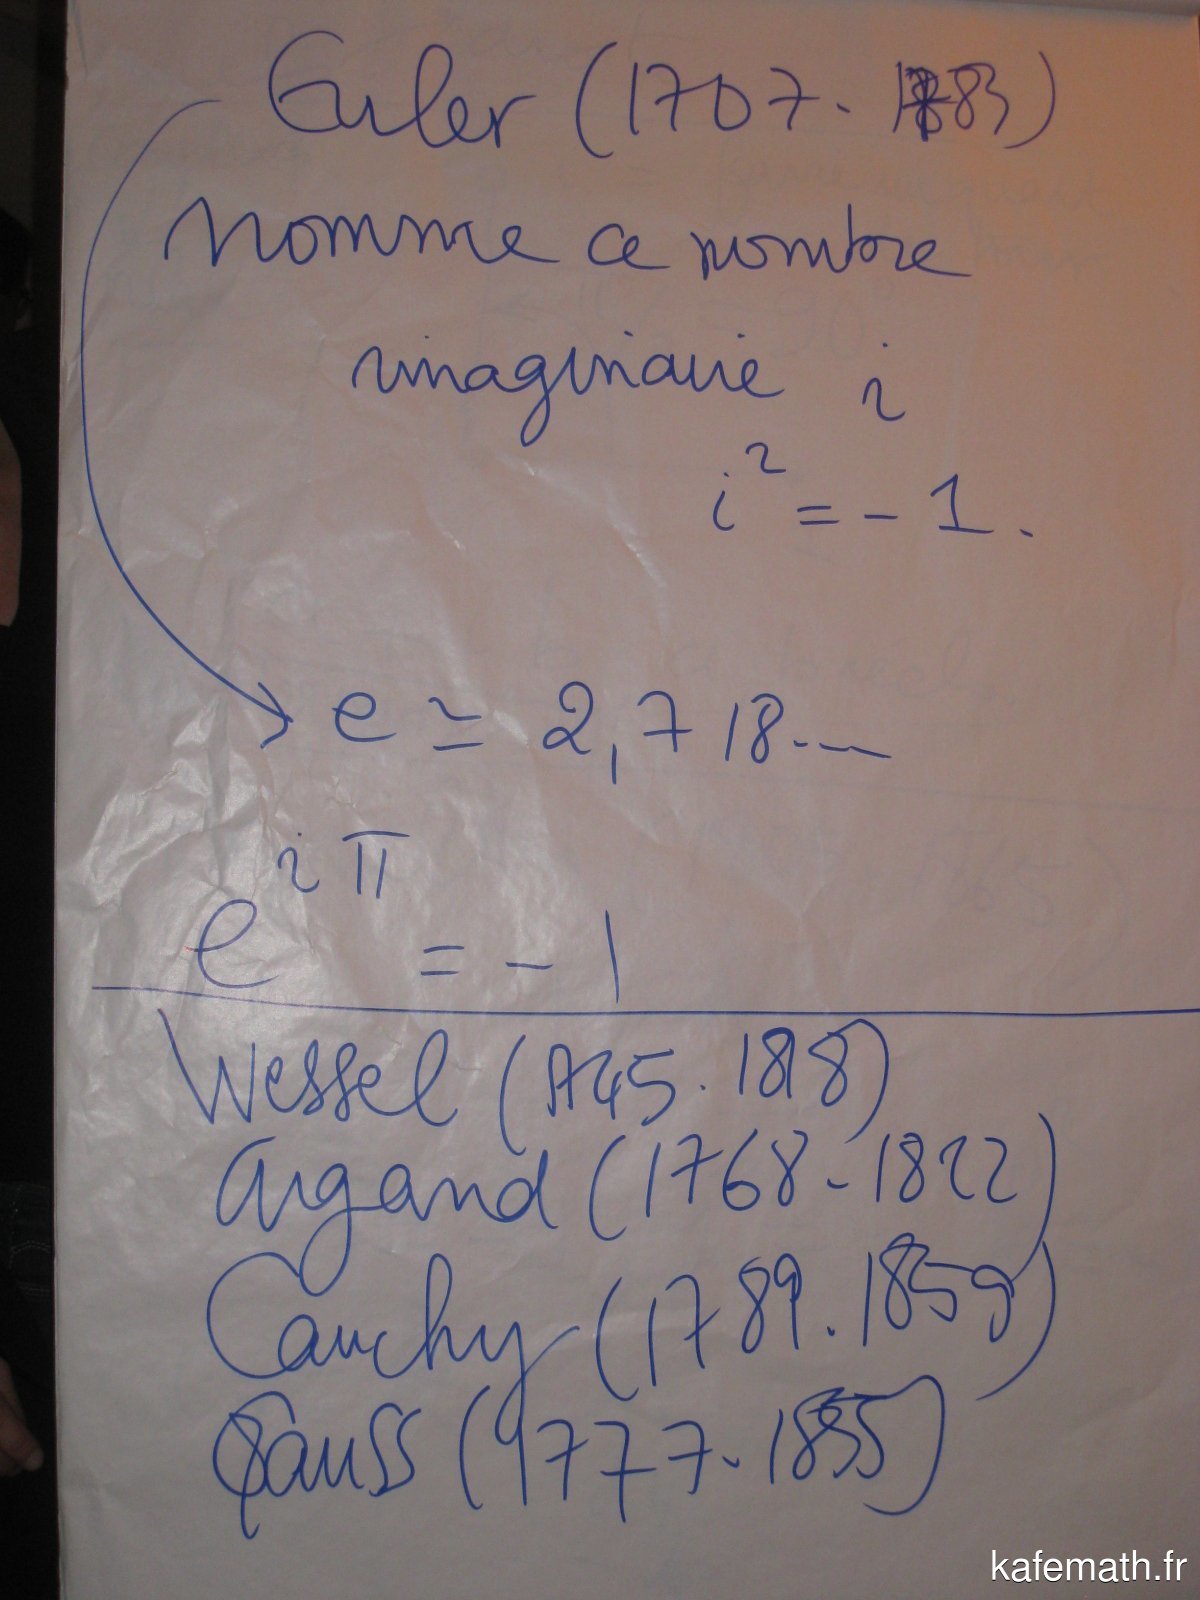 Euler (1707. 1783)
nomme ce nombre
imaginaire i
i² = - 1.
e ≃ 2,718...
e^iπ = - 1
Wessel (1745. 1818)
Argand (1768-1822)
Cauchy (1789. 1859)
Gauss (1777. 1855)
kafemath.fr